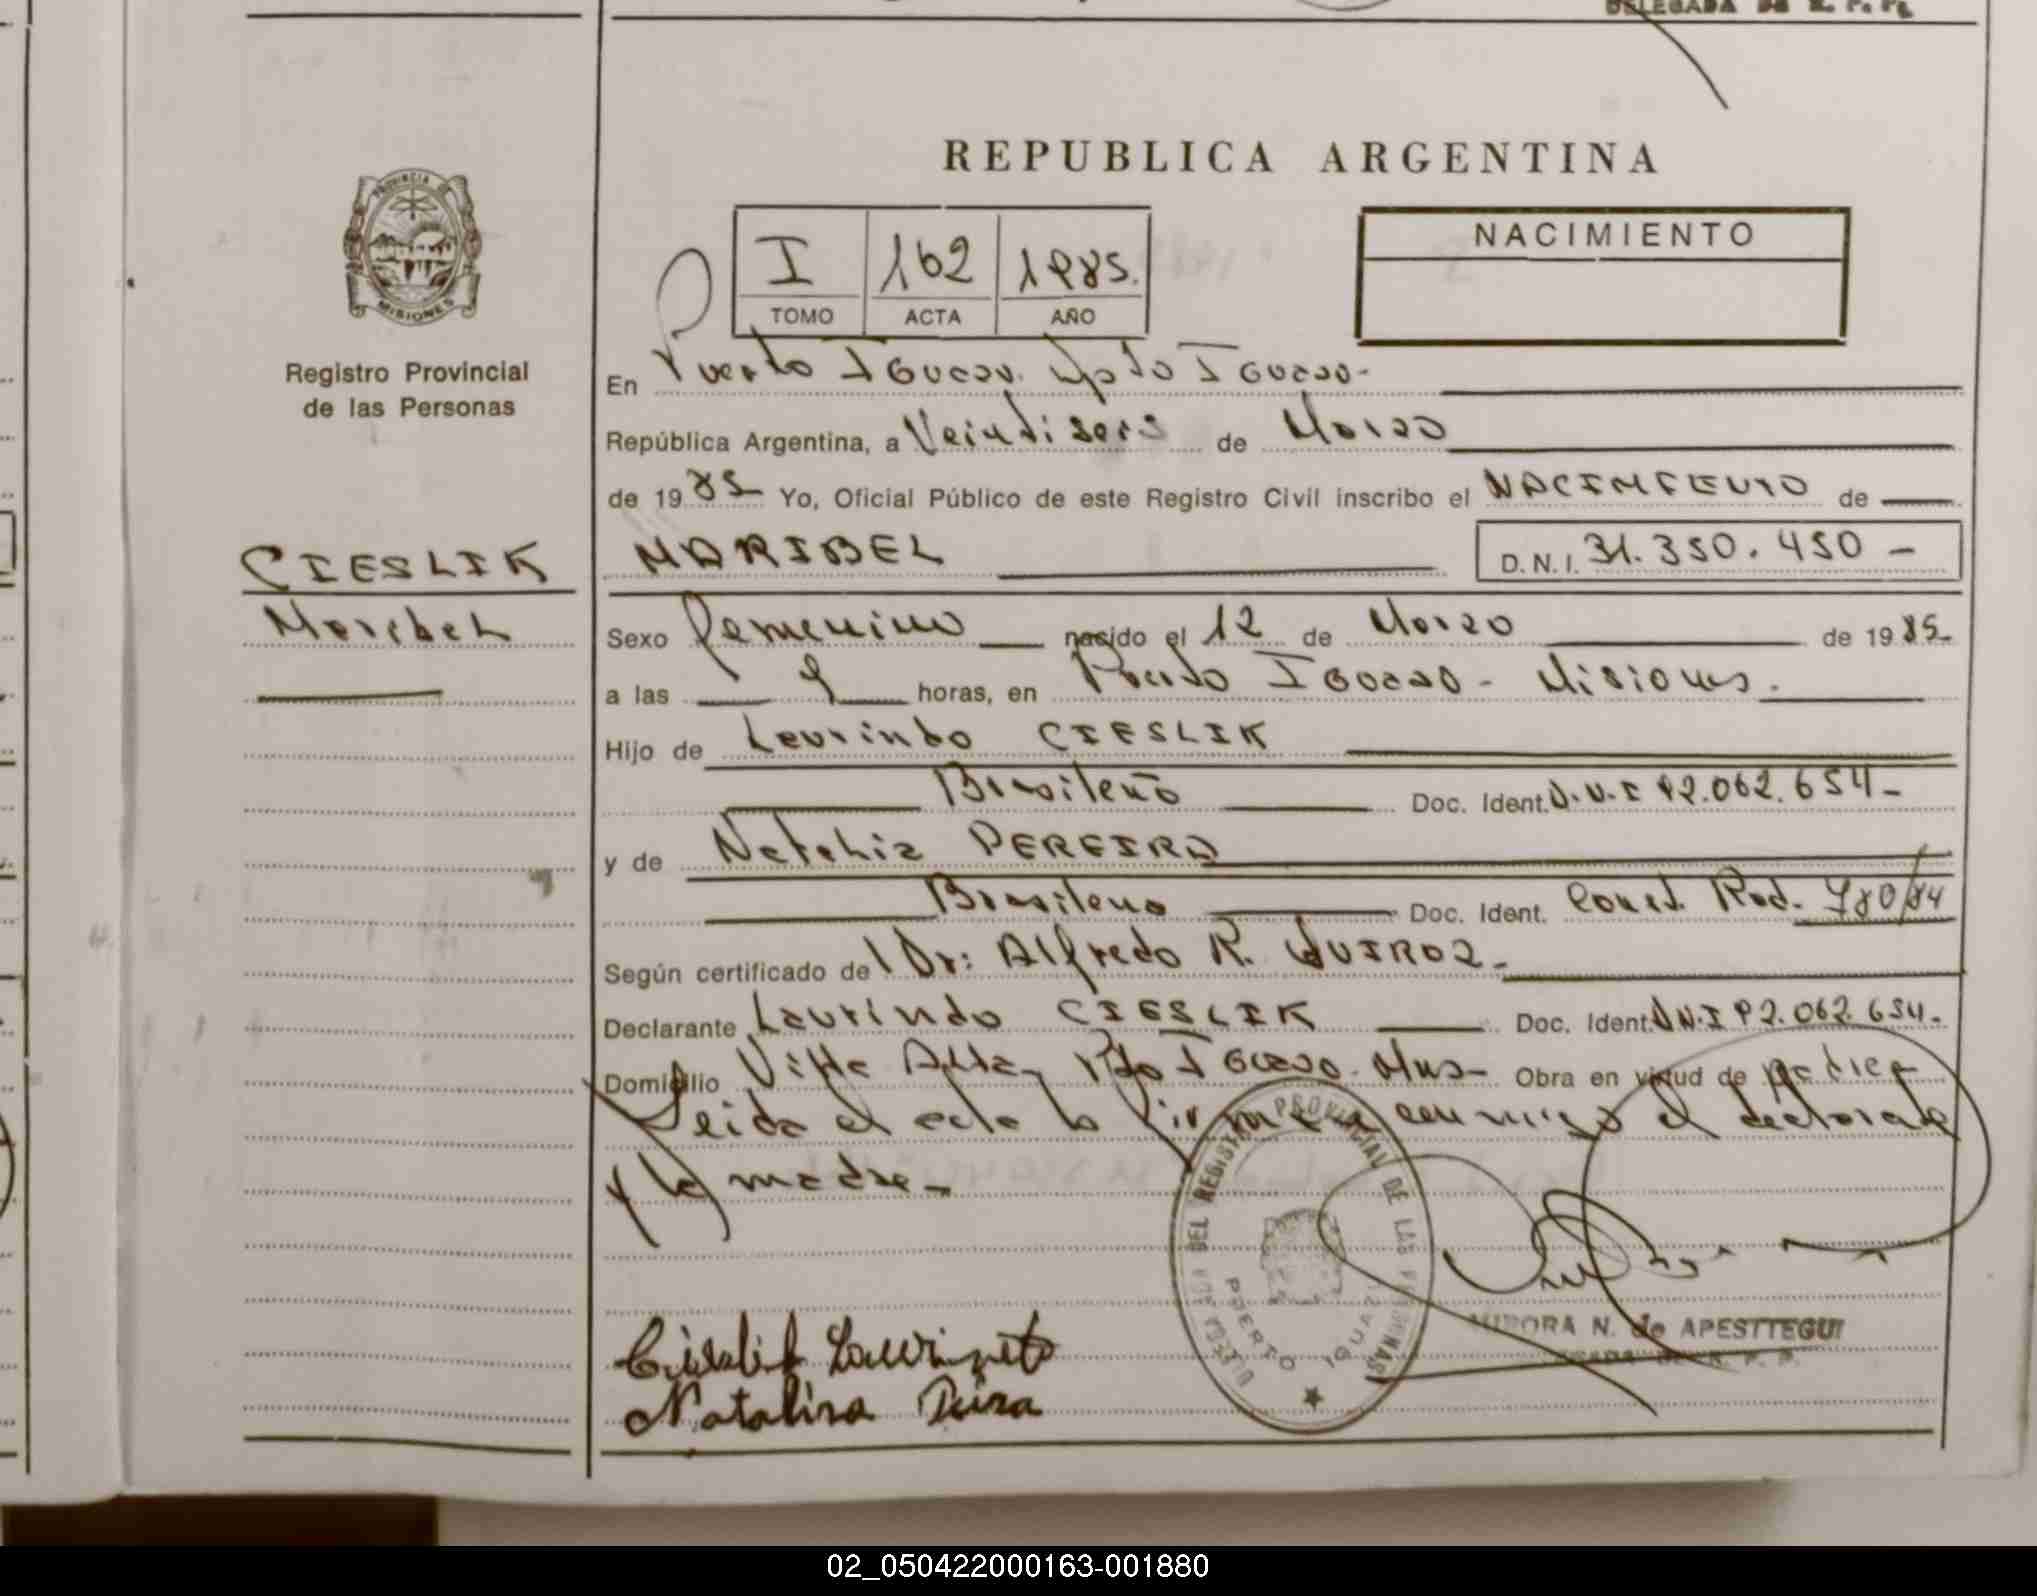 DELEGADA DE R. P. P.
REPUBLICA ARGENTINA
PROVINCIA DE
MISIONES
Registro Provincial
de las Personas
I 162 1985.
TOMO ACTA AÑO
NACIMIENTO
En Puerto Iguazú. Dpto Iguazú-
República Argentina, a Veintiseis de Marzo
de 1985 Yo, Oficial Público de este Registro Civil inscribo el NACIMIENTO de
CIESLIK
Maribel
MARIBEL D.N.I. 31.350.450 -
Sexo femenino nacido el 12 de Marzo de 1985-
a las 9 horas, en Puerto Iguazú - Misiones.
Hijo de Laurindo CIESLIK
Brasileño Doc. Ident. D.N.I 92.062.654-
y de Natalia PEREIRA
Brasilena Doc. Ident. Const. Rad. 780/84
Según certificado de Dr: Alfredo R. QUIROZ-
Declarante Laurindo CIESLIK Doc. Ident. D.N.I 92.062.654-
Domicilio Villa Alta, Pto Iguazú. Mnes- Obra en virtud de padre
Leida el acta la firman conmigo el declarante
y la madre-
DEL REGISTRO PROVINCIAL DE LAS PERSONAS
PUERTO IGUAZU
Cieslik Laurindo
Natalina
AURORA N. de APESTTEGUI
R. P. P.
02_050422000163-001880